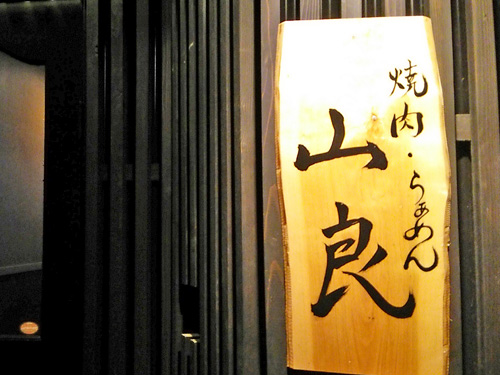 焼肉・らあめん
山良